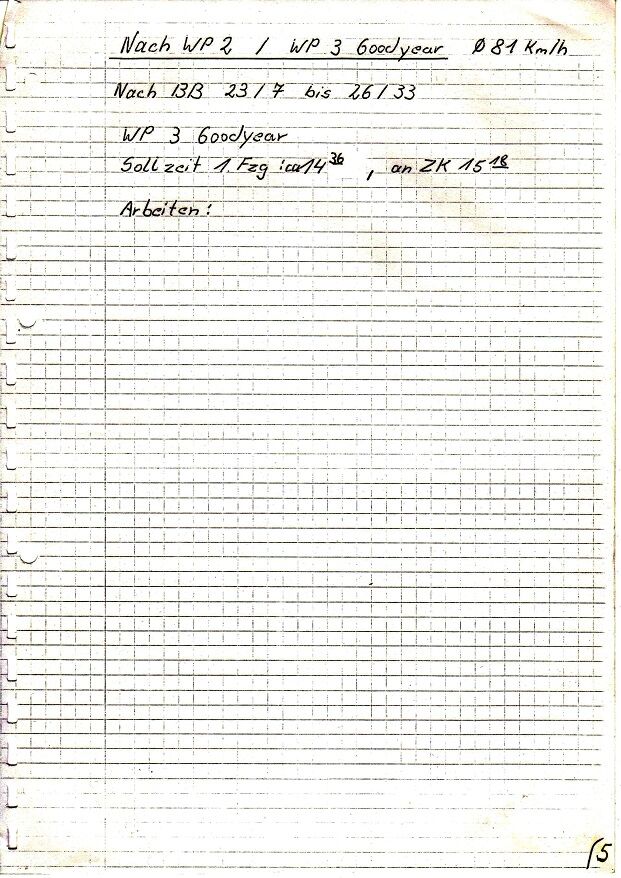 Nach WP 2 / WP 3 Goodyear Ø 81 Km/h
Nach BB 23/7 bis 26/33
WP 3 Goodyear
Sollzeit 1. Fzg : ca 14³⁶ , an ZK 15¹⁸
Arbeiten :
15